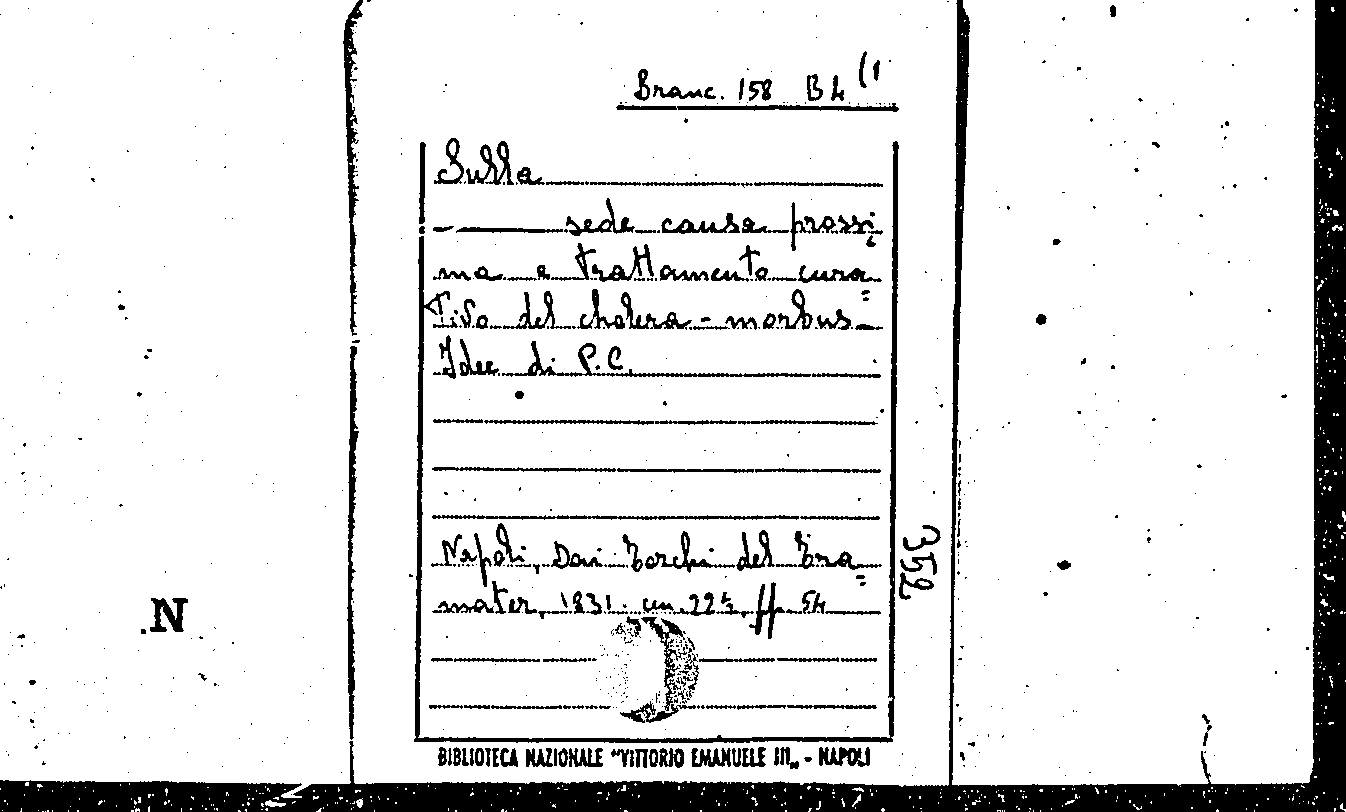 Branc. 158 B 4 (1
Sulla
— sede causa prossi
ma e trattamento cura=
tivo del cholera - morbus -
Idee di P.C.
Napoli, Dai Torchi del Tra=
mater, 1831. cm. 22½, pp. 54
352
N.
BIBLIOTECA NAZIONALE "VITTORIO EMANUELE III„ - NAPOLI